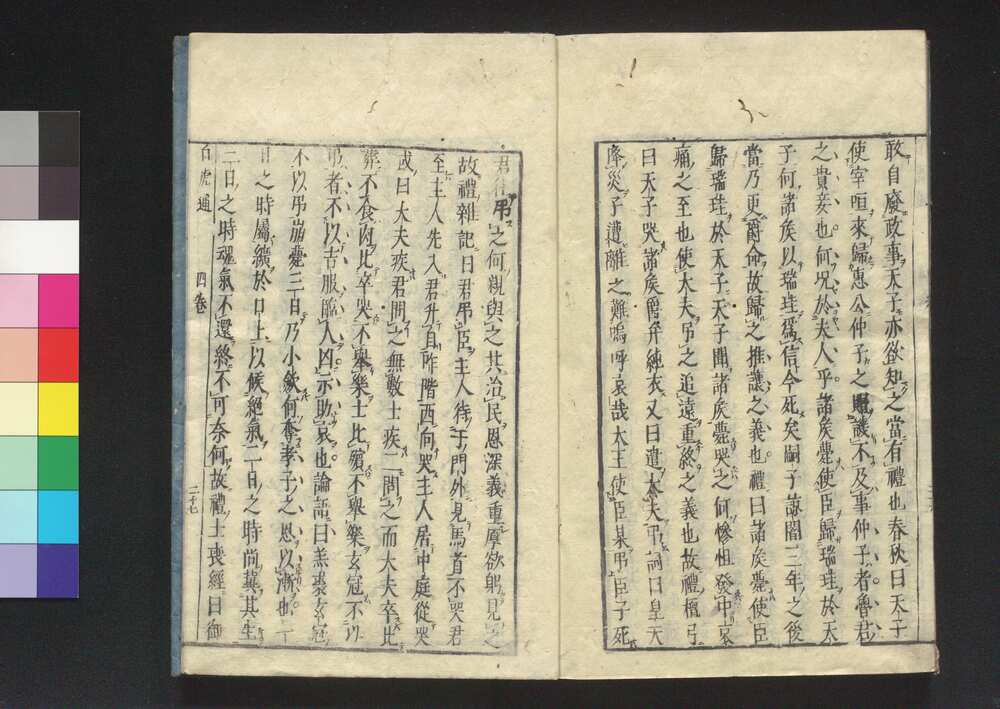 敢自廢政事天子亦欲知之當有禮也春秋曰天子
使宰咺來歸惠公仲子之賵譏不及事仲子者魯君
之貴妾也何況於夫人乎諸侯薨使臣歸瑞珪於天
子何諸侯以瑞珪爲信今死矣嗣子諒闇三年之後
當乃更爵命故歸之推讓之義也禮曰諸侯薨使臣
歸瑞珪於天子天子聞諸侯薨哭之何慘怛發中哀
痛之至也使大夫吊之追遠重終之義也故禮檀弓
曰天子哭諸侯爵弁純衣又曰遣大夫吊詞曰皇天
降災子遭離之難嗚呼哀哉大王使臣某吊臣子死
君往吊之何親與之共治民恩深義重厚欲躬見之
故禮雜記曰君吊臣主人待于門外見馬首不哭君
至主人先入君升自阼階西向哭主人居中庭從哭
或曰大夫疾君問之無數士疾一問之而大夫卒比
葬不食肉比卒哭不舉樂士比殯不舉樂玄冠不以
吊者不以吉服臨人凶示助哀也論語曰羔裘玄冠
不以吊崩薨三日乃小斂何奪孝子之恩以漸也一
日之時屬纊於口上以候絕氣二日之時尚冀其生
三日之時魂氣不還終不可奈何故禮士喪經曰御
白虎通
四卷
二十七